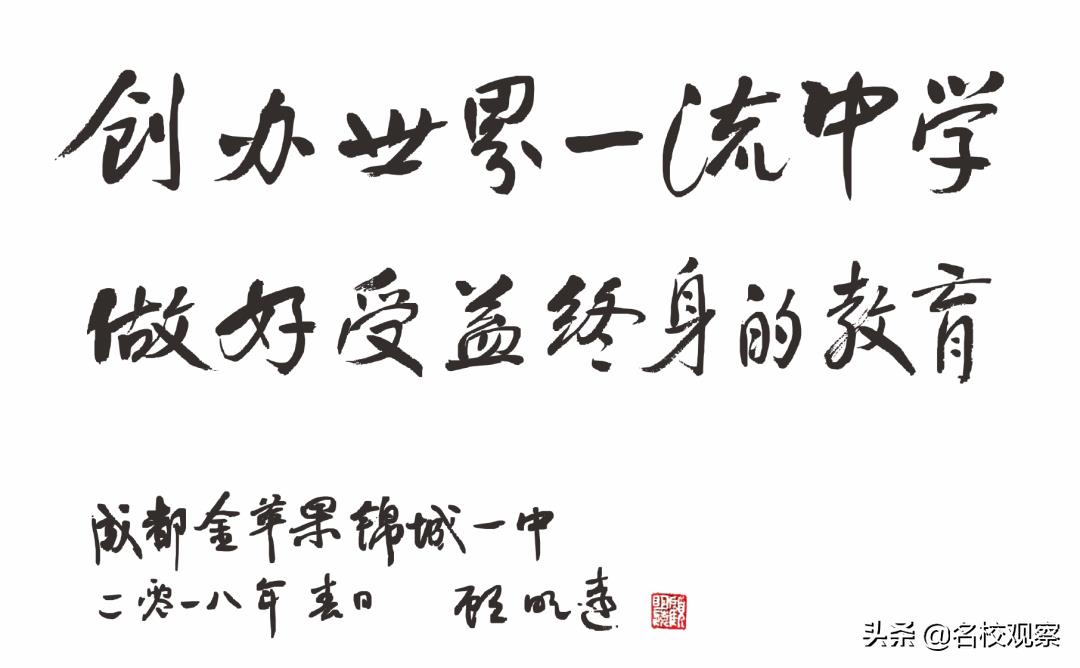 创办世界一流中学
做好受益终身的教育
成都金苹果锦城一中
二零一八年春日 顾明远
顾明远
头条 @名校观察